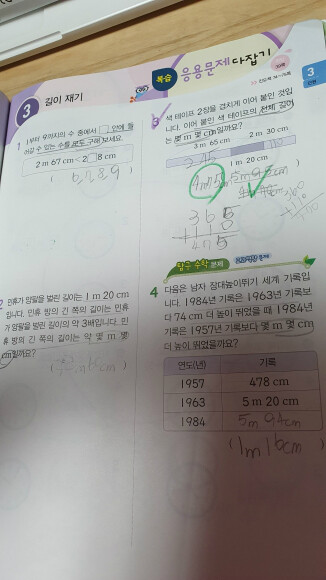 3 길이 재기
복습 응용문제 다잡기
3
단원
1 1부터 9까지의 수 중에서 □ 안에 들
어갈 수 있는 수를 모두 구해 보세요.
2 m 67 cm < 2□8 cm
( 6, 7, 8, 9 )
2 민휴가 양팔을 벌린 길이는 1 m 20 cm
입니다. 민휴 방의 긴 쪽의 길이는 민휴
가 양팔을 벌린 길이의 약 3배입니다. 민
휴 방의 긴 쪽의 길이는 약 몇 m 몇
cm일까요?
3 색 테이프 2장을 겹치게 이어 붙인 것입
니다. 이어 붙인 색 테이프의 전체 길이
는 몇 m 몇 cm일까요?
3 m 65 cm 2 m 30 cm
1 m 20 cm
365
475
탐구 수학 문제
4 다음은 남자 장대높이뛰기 세계 기록입
니다. 1984년 기록은 1963년 기록보
다 74 cm 더 높이 뛰었을 때 1984년
기록은 1957년 기록보다 몇 m 몇 cm
더 높이 뛰었을까요?
연도(년) 기록
1957 478 cm
1963 5 m 20 cm
1984 5m 94cm
( 1m 16cm )